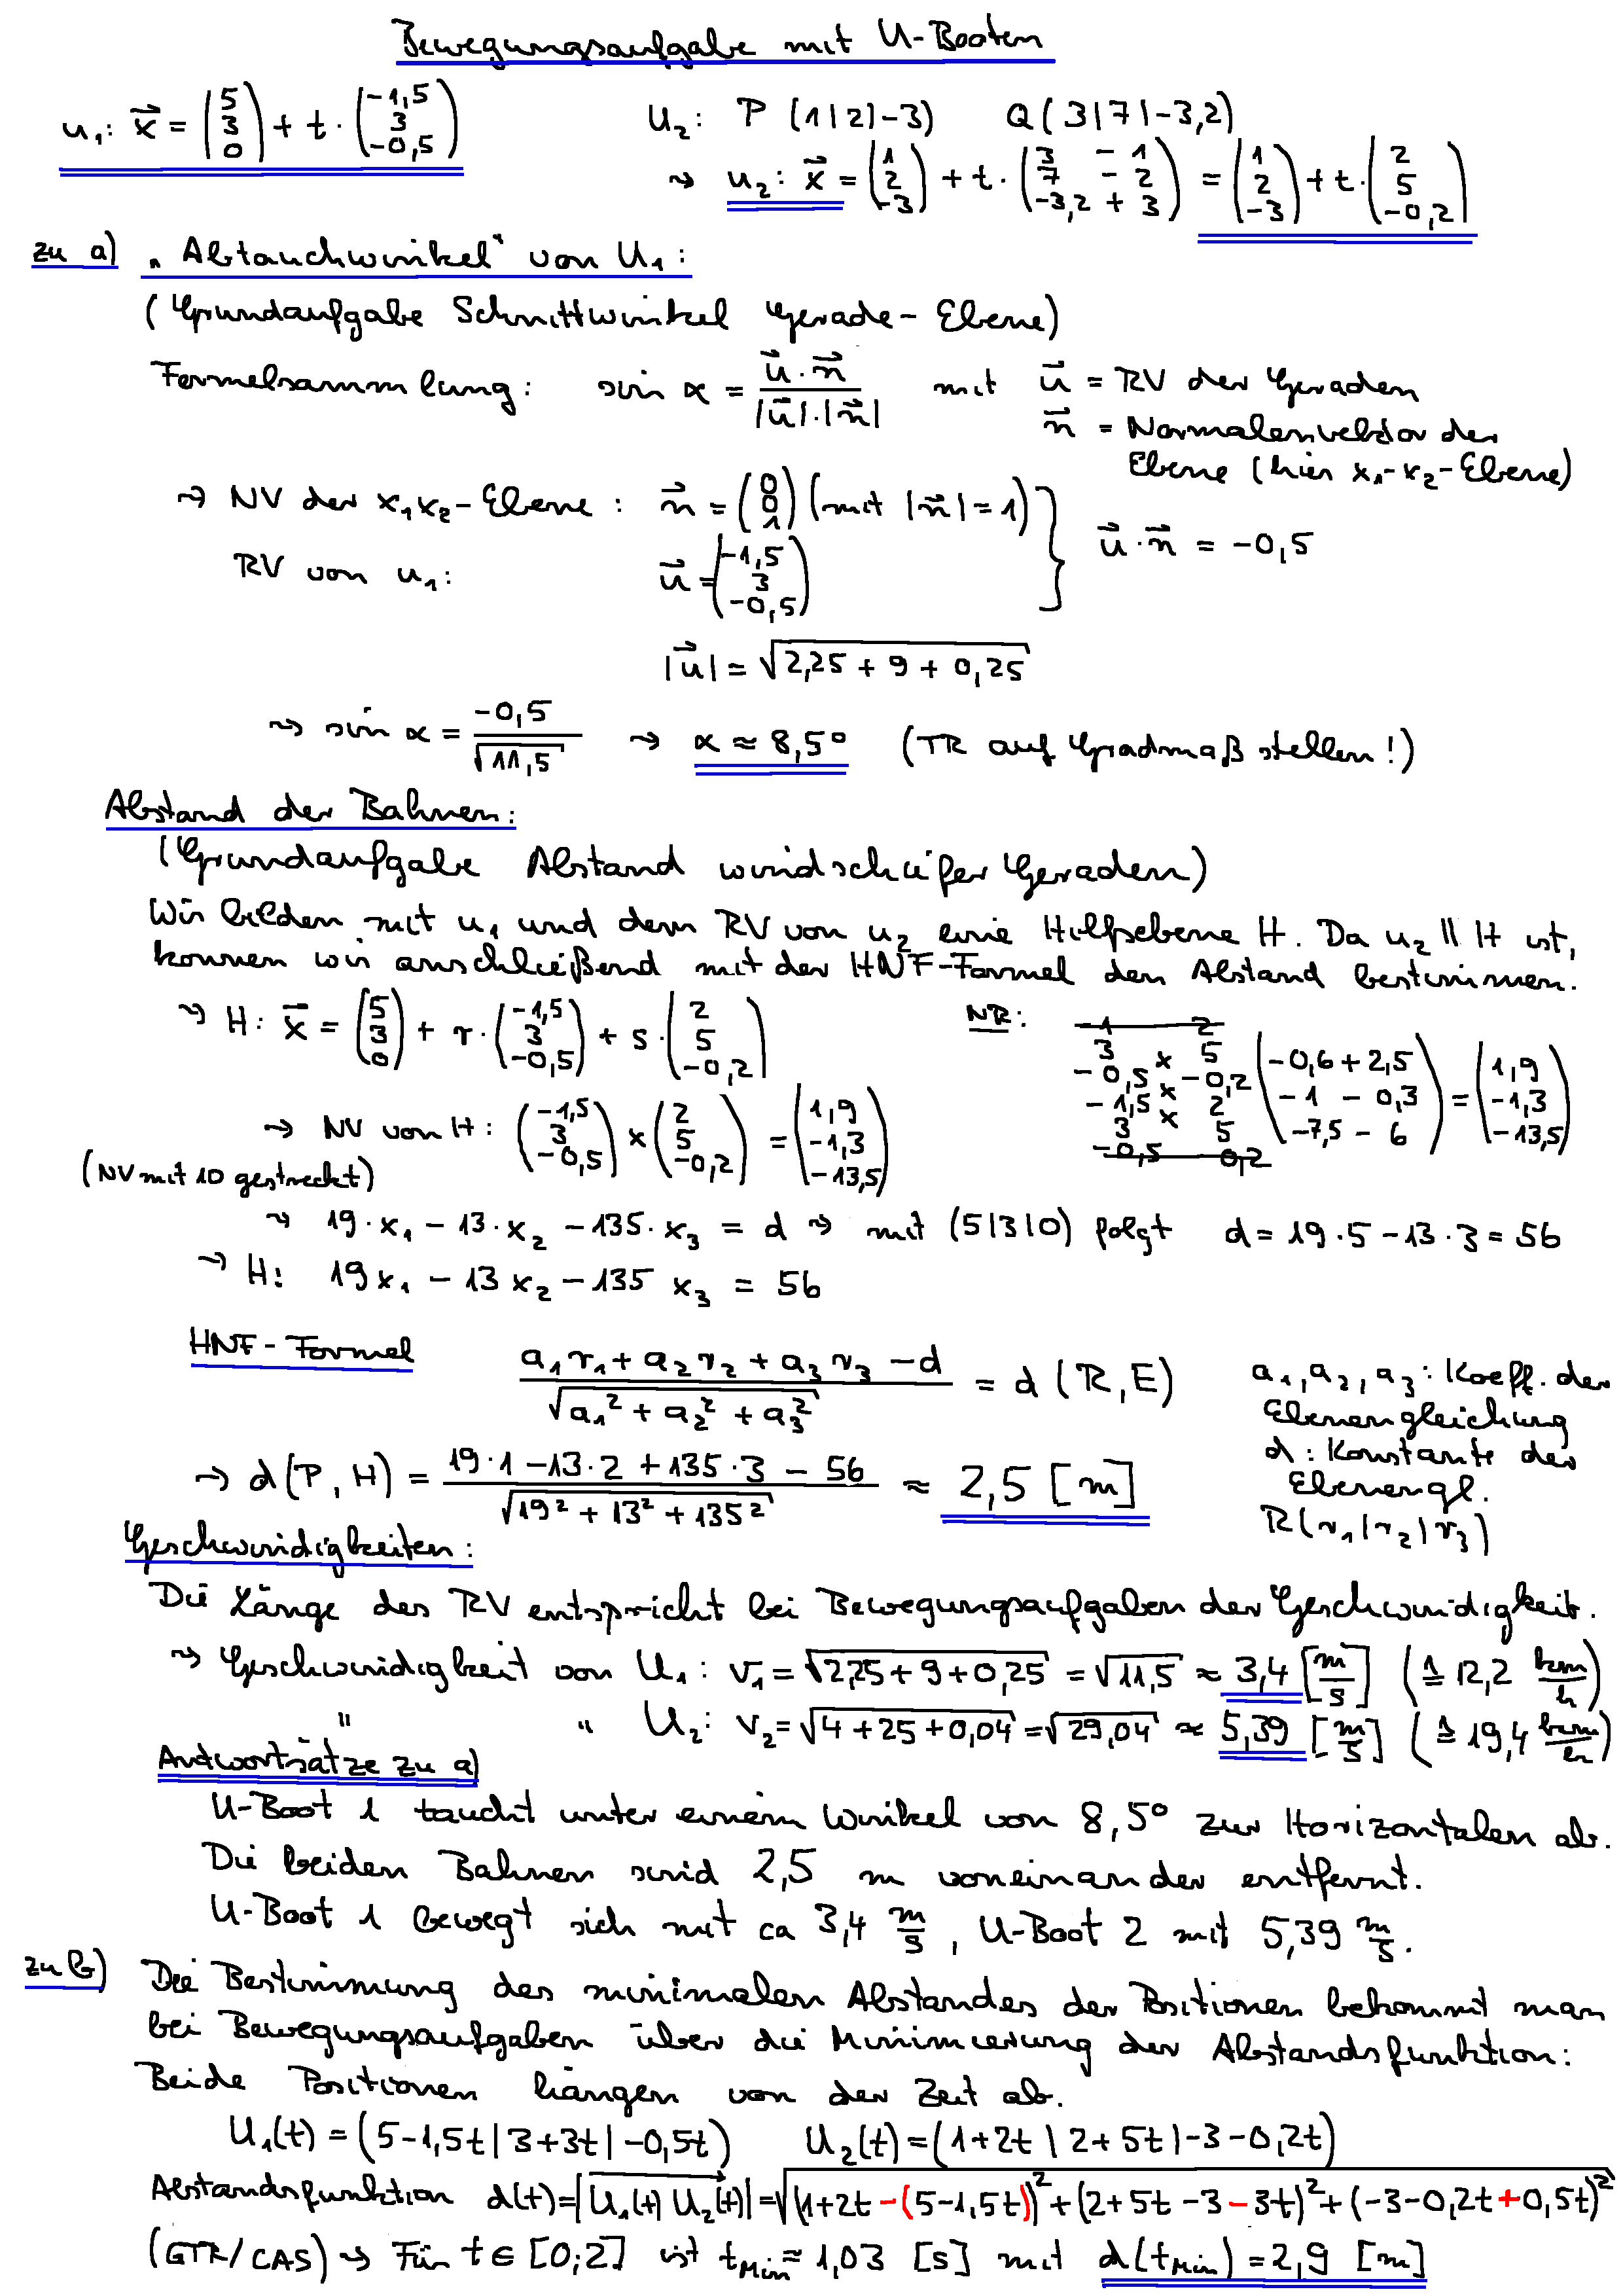 Bewegungsaufgabe mit U-Booten
u₁: x⃗ = (5 3 0) + t · (-1,5 3 -0,5)
U₂: P (1|2|-3) Q (3|7|-3,2)
⇝ u₂: x⃗ = (1 2 -3) + t · (3 - 1 7 - 2 -3,2 + 3) = (1 2 -3) + t · (2 5 -0,2)
zu a) „Abtauchwinkel" von U₁:
(Grundaufgabe Schnittwinkel Gerade-Ebene)
Formelsammlung: sin α = u⃗ · n⃗ / |u⃗| · |n⃗| mit u⃗ = RV der Geraden
n⃗ = Normalenvektor der
Ebene (hier x₁-x₂-Ebene)
⇝ NV der x₁x₂-Ebene: n⃗ = (0 0 1) (mit |n⃗| = 1) } u⃗ · n⃗ = -0,5
RV von u₁: u⃗ = (-1,5 3 -0,5)
|u⃗| = √(2,25 + 9 + 0,25)
⇝ sin α = -0,5 / √11,5 ⇝ α ≈ 8,5° (TR auf Gradmaß stellen!)
Abstand der Bahnen:
(Grundaufgabe Abstand windschiefer Geraden)
Wir bilden mit u₁ und dem RV von u₂ eine Hilfsebene H. Da u₂ ∥ H ist,
können wir anschließend mit der HNF-Formel den Abstand bestimmen.
⇝ H: x⃗ = (5 3 0) + r · (-1,5 3 -0,5) + s · (2 5 -0,2)
NR: -1 2
3 × 5
-0,5 × -0,2
-1,5 × 2
3 × 5
-0,5 0,2
(-0,6 + 2,5 -1 - 0,3 -7,5 - 6) = (1,9 -1,3 -13,5)
⇝ NV von H: (-1,5 3 -0,5) × (2 5 -0,2) = (1,9 -1,3 -13,5)
(NV mit 10 gestreckt)
⇝ 19 · x₁ - 13 · x₂ - 135 · x₃ = d ⇝ mit (5|3|0) folgt d = 19 · 5 - 13 · 3 = 56
⇝ H: 19x₁ - 13x₂ - 135 x₃ = 56
HNF-Formel a₁r₁ + a₂r₂ + a₃r₃ - d / √(a₁² + a₂² + a₃²) = d (R,E)
a₁,a₂,a₃: Koeff. der
Ebenengleichung
d: Konstante der
Ebenengl.
R(r₁|r₂|r₃)
⇝ d(P,H) = 19·1 - 13·2 + 135·3 - 56 / √(19² + 13² + 135²) ≈ 2,5 [m]
Geschwindigkeiten:
Die Länge des RV entspricht bei Bewegungsaufgaben der Geschwindigkeit.
⇝ Geschwindigkeit von U₁: v₁ = √(2,25 + 9 + 0,25) = √11,5 ≈ 3,4 [m/s] (≙ 12,2 km/h)
" " U₂: v₂ = √(4 + 25 + 0,04) = √29,04 ≈ 5,39 [m/s] (≙ 19,4 km/h)
Antwortsätze zu a)
U-Boot 1 taucht unter einem Winkel von 8,5° zur Horizontalen ab.
Die beiden Bahnen sind 2,5 m voneinander entfernt.
U-Boot 1 bewegt sich mit ca 3,4 m/s, U-Boot 2 mit 5,39 m/s.
zu b) Die Bestimmung des minimalen Abstandes der Positionen bekommt man
bei Bewegungsaufgaben über die Minimierung der Abstandsfunktion:
Beide Positionen hängen von der Zeit ab.
U₁(t) = (5-1,5t | 3+3t | -0,5t) U₂(t) = (1+2t | 2+5t | -3-0,2t)
Abstandsfunktion d(t) = |U₁(t) U₂(t)| = √((1+2t-(5-1,5t))² + (2+5t-3-3t)² + (-3-0,2t+0,5t)²)
(GTR/CAS) ⇝ Für t ∈ [0;2] ist t_Min ≈ 1,03 [s] mit d(t_Min) = 2,9 [m]